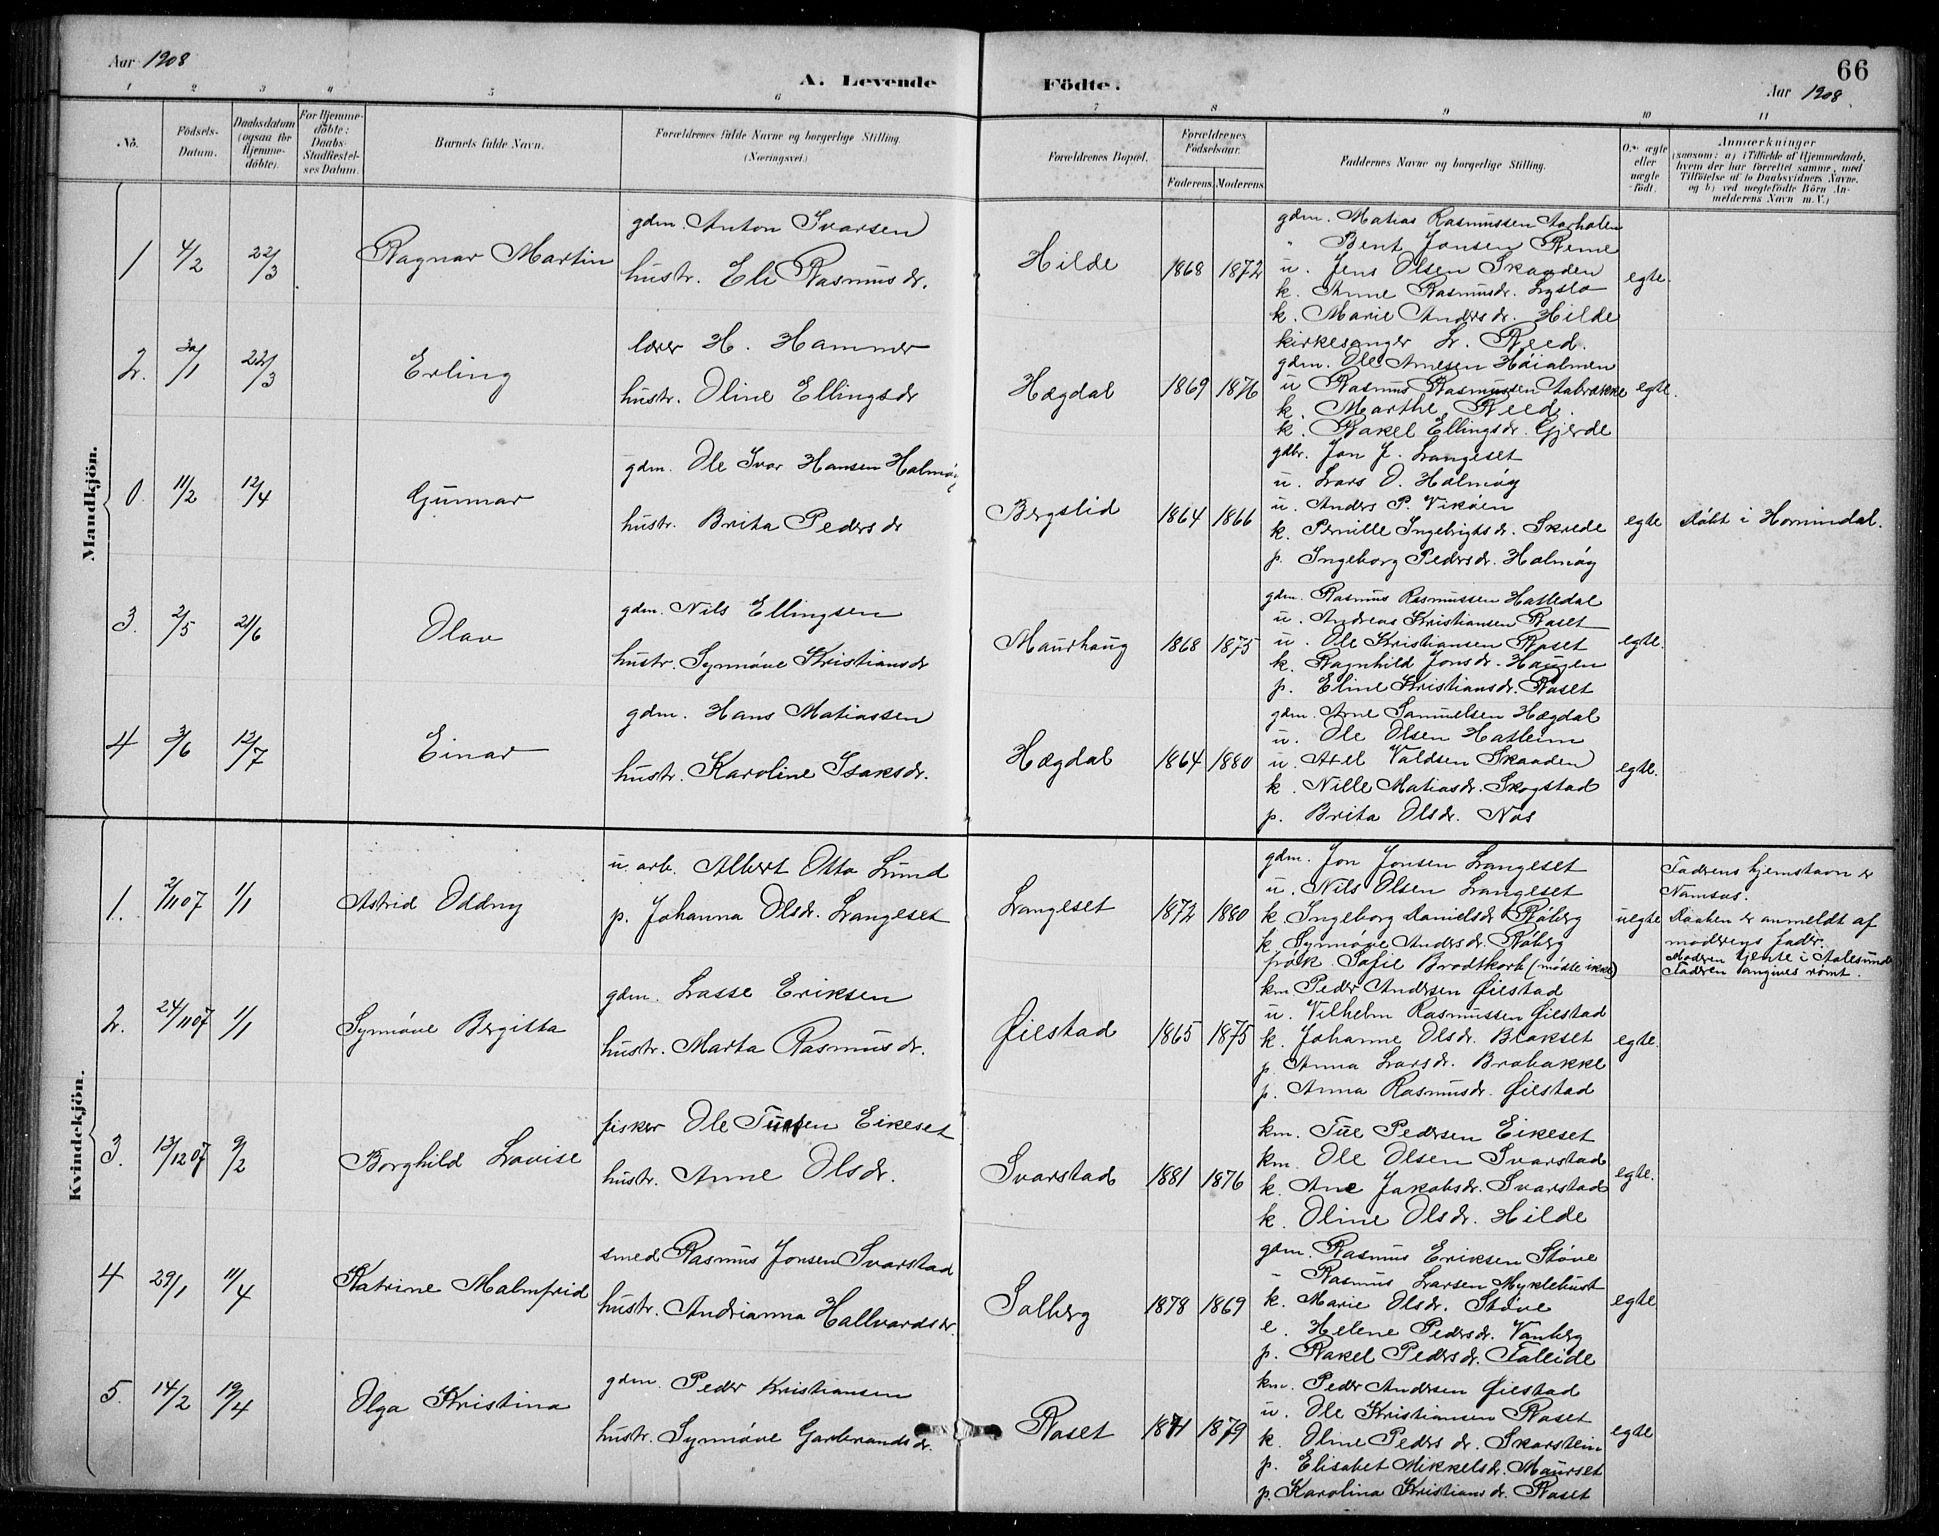 Aar 1908
A. Levende
Födte.
66
Aar 1908.
1 2 3 4 5 6 7 8 9 10 11
No.
Födsels-Datum.
Daabsdatum (ogsaa for Hjemme-döbte).
For Hjemme-döbte: Daabs-Stadfæstel-ses Datum.
Barnets fulde Navn.
Forældrenes fulde Navne og borgerlige Stilling (Næringsvei).
Forældrenes Bopæl.
Forældrenes Födselsaar.
Faderens Moderens
Faddernes Navne og borgerlige Stilling.
Om ægte eller uægte födt.
Anmærkninger
(saasom: a) i Tilfælde af Hjemmedaab,
hvem der har forrettet samme, med
Tilföielse af to Daabsvidners Navne.
og b) ved uægtefödte Börn An-
melderens Navn m. V.)
Mandkjön.
1 4/2 22/3 Ragnar Martin
gdm. Anton Ivarsen
hustr. Eli Rasmusdr.
Hilde 1868 1872
gdm. Matias Rasmussen Aarholen
" Bent Jonsen Reme
u. Jens Olsen Skaaden
k. Anne Rasmusdr. Lyslo
k. Marie Andersdr. Hilde
egte.
2. 30/1 22/3 Erling
lærer H. Hammer
hustr. Oline Ellingsdr
Hægdal 1869 1876
kirkesanger L. Reed.
gdm. Ole Arnesen Høialmen
u Rasmus Rasmussen Aabrække
k. Marthe Reed.
k. Rakel Ellingsdr. Gjerde
egte.
0. 11/2 12/4 Gunnar
gdm. Ole Ivar Hansen Holmøy
hustr. Brita Pedersdr
Bergslid 1864 1866
gdbr. Jon J. Langeset
u. Lars O. Holmøy
u. Anders P. Vikøen
k. Pernille Ingebrigtsdr. Skrede
p. Ingeborg Pedersdr. Holmøy
egte
Døbt i Hornindal.
3. 2/5 21/6 Olav
gdm. Nils Ellingsen
hustr. Synnøve Kristiansdr
Maurhaug 1868 1875
gdm. Rasmus Rasmussen Hatledal
u. Andreas Kristiansen Raset
u. Ole Kristiansen Raset
k. Ragnhild Jonsdr. Haugen
p. Eline Kristiansdr. Raset
egte.
4 3/6 12/7 Einar
gdm. Hans Matiassen
hustr. Karoline Isaksdr.
Hægdal 1864 1880
gdm. Arne Samuelsen Hægdal
u. Ole Olsen Hatleim
u. Axel Valdsen Skaaden
k. Nille Matiasdr. Skogstad
p. Brita Olsdr. Nos
egte.
Kvindekjön.
1. 2/11 07 1/1 Astrid Oddny
u. arb. Albert Otto Lund
p. Johanna Olsdr. Langeset
Langeset 1872 1880
gdm. Jon Jonsen Langeset
u. Nils Olsen Langeset
k. Ingeborg Danielsdr. Røberg
k. Synnøve Andersdr. Røberg
frøk. Sofie Brodtkorb (mødte ikke)
uegte
Faderens hjemstavn er
Namsos.
Daaben er anmeldt af
moderens fader.
Moderen tjente i Aalesund
Faderen angives rømt.
2. 24/11 07 1/1 Synnøve Bergitta
gdm. Lasse Eriksen
hustr. Marta Rasmusdr.
Øiestad 1865 1875
km. Peder Andersen Øiestad
u. Vilhelm Rasmussen Øiestad
k. Johanne Olsdr. Blakset
p. Anna Larsdr. Brobakke
p. Anna Rasmusdr. Øiestad
egte.
3. 13/12 07 9/2 Borghild Lovise
fisker Ole Tuesen Eikeset
hustr. Anne Olsdr.
Svarstad 1881 1876
km. Tue Pedersen Eikeset
km. Ole Olsen Svarstad
k. Ane Jakobsdr. Svarstad
k. Oline Olsdr. Hilde
egte.
4 29/1 11/4 Katrine Malmfrid
smed Rasmus Jonsen Svarstad
hustr. Andrianna Hallvardsdr.
Solberg 1878 1869
gdm. Rasmus Eriksen Støve
u Rasmus Larsen Myklebust
k. Marie Olsdr. Støve
e. Helene Pedersdr. Vanberg
p. Rakel Pedersdr. Faleide
egte
5. 14/2 19/4 Olga Kristina
gdm. Peder Kristiansen
hustr. Synnøve Garbrandsdr.
Raset 1871 1879
km. Peder Andersen Øiestad
u. Ole Kristiansen Raset
k. Oline Pedersdr. Skarstein
p. Elisabet Mikkelsdr. Maurset
p. Karolina Kristiansdr. Raset
egte